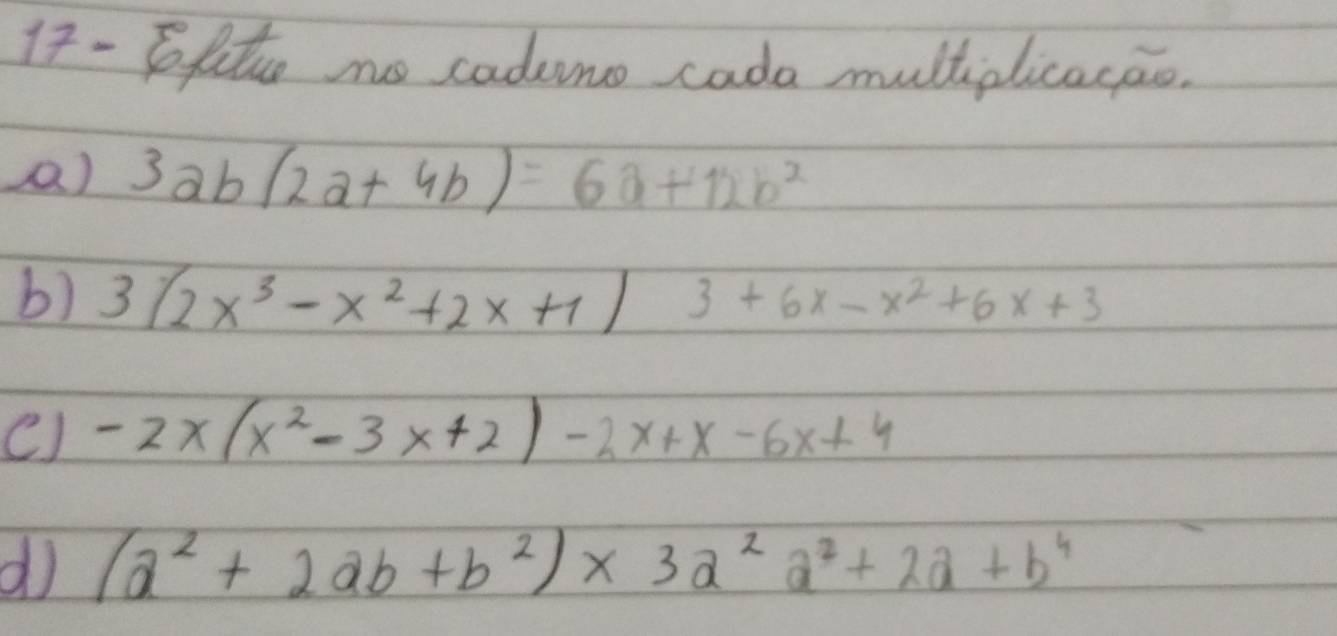 17- Efetue no caderno cada multiplicação.
a) 3ab(2a+4b)= 6a+12b²
b) 3(2x³-x²+2x+1) 3+6x-x²+6x+3
c) -2x(x²-3x+2) -2x+x-6x+4
d) (a²+2ab+b²)x 3a² a²+2a+b⁴